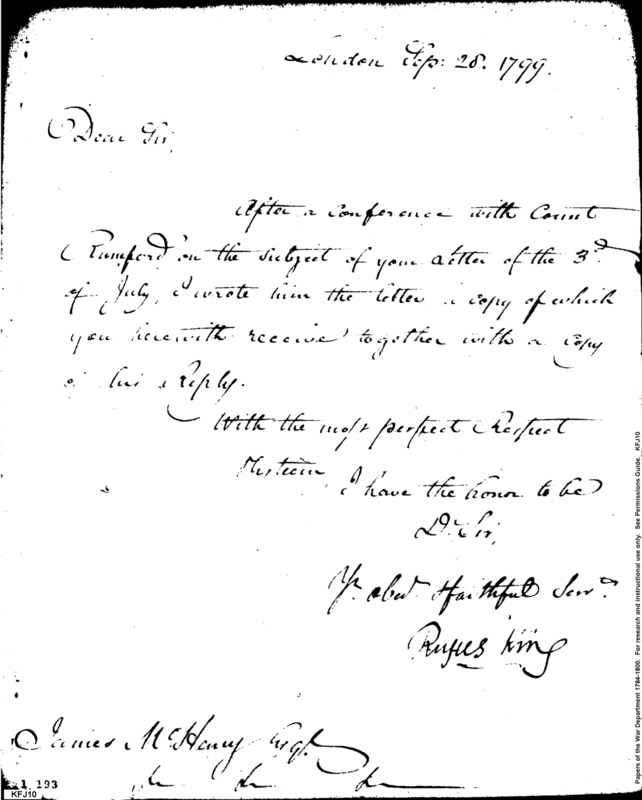 London Sep: 28. 1799.
Dear Sir,
After a conference with Count
Rumford on the subject of your Letter of the 3d
of July, I wrote him the letter a copy of which
you herewith receive together with a copy
of his Reply.
With the most perfect Respect
& Esteem, I have the honor to be
Dr Sir,
Yr. obed. & faithful Servt.
Rufus King
James McHenry Esqr.
&c &c &c
1 193
KFJ10
Papers of the War Department 1784-1800. For research and instructional use only. See Permissions Guide. KFJ10